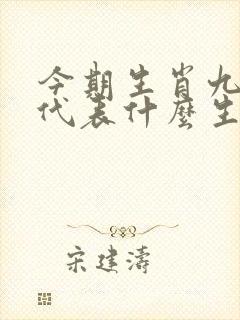 今期生肖九
代表什麼生
宋建濤